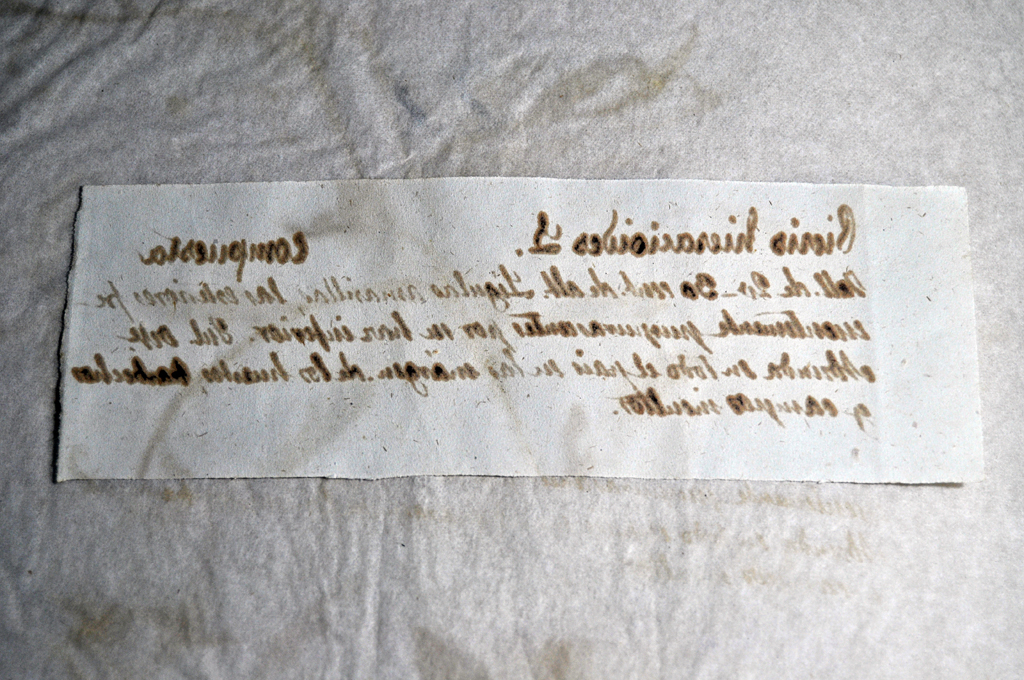 Picris hieracioides L.
Compuesta
Tall. de 20-30 cent. de alt. Lígulas amarillas, las esteriores fre-
cuentemente purpurascentes por su haz inferior. Jul. Oct.
Abunda en todo el pais en las márgen. de los huertos, barbechos
y campos incultos.